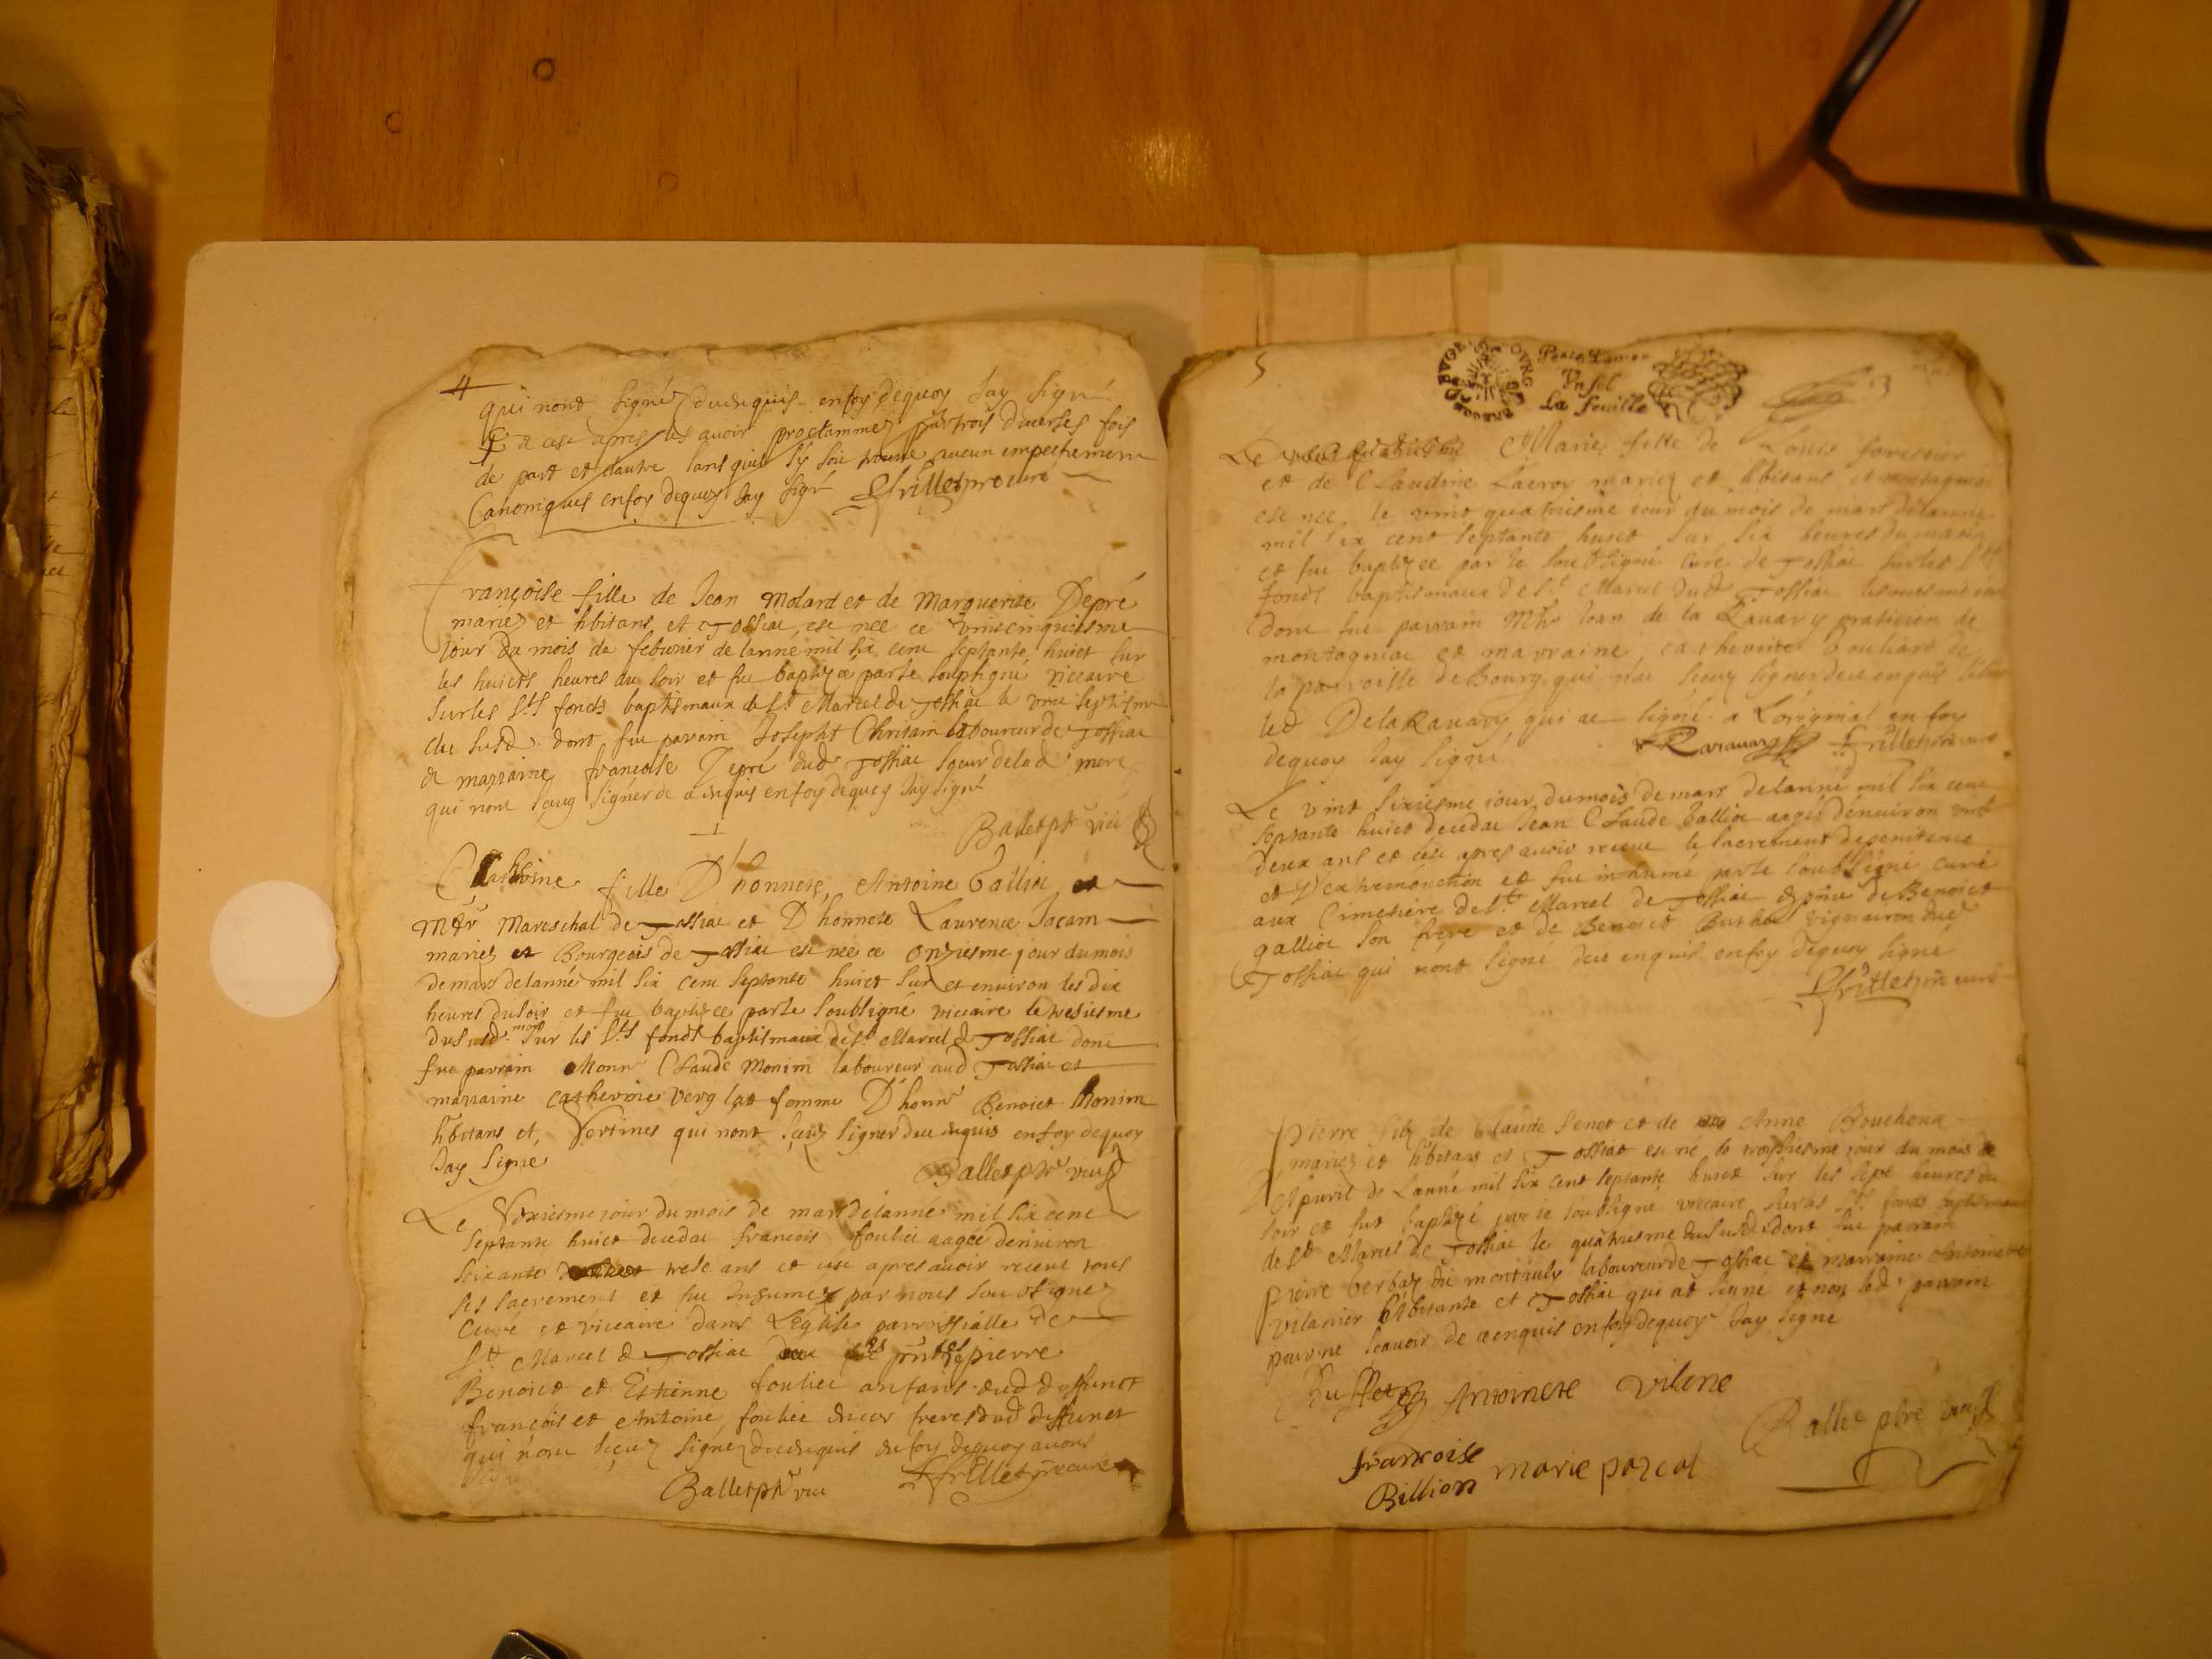 4
qui nont signé deuenquis enfoy dequoy Jay signé
Et a esté apres les avoir proclammez par trois diuerses fois
de part et dautre sans quil sy soit trouué aucun empechement
Canoniques enfoy dequoy Jay signé Ffrillet pre curé
Françoise fille de Jean Molard et de Marguerite Depré
mariez et hbitans et Tossiac, est nee ce vint cinquiesme
iour du mois de feburier de lanné mil six cent septante huict sur
les huicts heures du soir et fut baptizée par le soubsigné viccaire
sur les Sts fonds baptismaux de St Marcel de Tossiac le vint septiesme
du susd. dont fut parrain Josepht Chritain laboureur de Tossiac
et marraine françoise Depré dud Tossiac soeur de lad mere
qui nont sceuz signer de a enquis enfoy dequoy Jay signé
Ballet ptr vicc
Catherine fille D'honnete Antoine Gallioz et
Mtr Mareschal de Tossiac et D'honnete Laurence Jacam
mariez et Bourgeois de Tossiac est née ce onziesme jour dumois
de mars de lanné mil six cent septante huict sur et enuiron les dix
heures du soir et fut baptizee par le soubsigné viccaire le tresiesme
du susd. mois sur les Sts fonds baptismaux de St Marcel de Tossiac dont
fut parrain Honn Claude Monin laboureur aud Tossiac et
marraine Catherine Verglat femme D'honn Benoict Monin
hbitans et, Vertines qui nont sceuz signer deuenquis enfoy dequoy
Jay signe
Ballet ptr vicc
Le iour du mois de mars delanné mil six cent
septante huict decedat francois foulici aagée denuiron
soixante trese ans et ce apres auoir receut tous
ses sacrements et fut Inhumez par nous soubsignez
Curé et viccaire dans L'Eglise parroissialle de
St Marcel de Tossiac pierre
Benoict et Estienne foulici enfans dud deffunct
françois et Antoine foulici encor freres dud deffunct
qui nont sceuz signéz deuenquis enfoy dequoy auons
Ballet ptr vicc Ffrillet pre curé
5
BOURG
Un sol
La feuille
Marie, fille de Louis forestier
et de Claudine Lacroy mariez et hbitans et montagniac
est nee le vint quatriesme iour du mois de mars delanné
mil six cent septante huict sur six heures du matin
et fut baptizee par le soubsigné curé de Tossiac sur les Sts
fonds baptismaux de St Marcel dud Tossiac
dont fut parrain Mtr Jean de la Ravary praticien de
montagniac et marraine, catherine Bouliard de
la parroisse de Bourg qui nat sceuz signer deue enquis
led Delaravary qui at signé a Lorigniac en foy
dequoy Jay signé Ravavary Ffrillet pre curé
Le vint sixiesme iour, dumois de mars delanné mil six cent
septante huict decedat Jean Claude Gallioz aagé denuiron vint
deux ans et ce apres auoir receut le sacrement de penitence
et d'extremonction et fut inhumé par le soubsigné curé
aux Cimetiere de St Marcel de Tossiac de Benoict
gallioz son frere et de Benoict vigneron dud
Tossiac qui nont signé deue enquis enfoy dequoy signé
Ffrillet pre curé
Pierre filz de Claude Senet et de Anne Bouchoux
mariez et hbitans et Tossiac est né le troisiesme iour du mois
D'Apuril de Lanné mil six cent septante huict sur les sept heures du
soir et fut baptizé par le soubsigné viccaire sur les Sts fonds baptismaux
de St Marcel de Tossiac le quatriesme dususd. dont fut parrain
Pierre du laboureur de Tossiac et marraine Antoinette
Vilanier hbitante et Tossiac qui at signé et non led parrain
pour ne scavoir de a enquis enfoy dequoy Jay signé
Antoinete Vilene
Ballet ptre vicc
francoise
Billion marie pascal